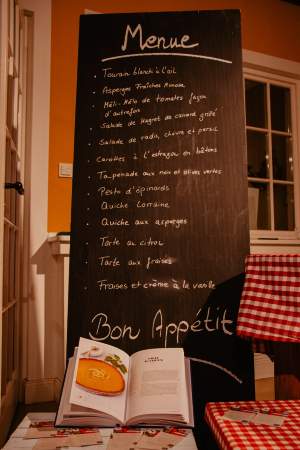 Menue
- Touran blanchi à l'ail
- Asperges Fraîches Mimosa
- Méli-Mélo de tomates façon
d'autrefois
- Salade de Magret de canard grillé
- Salade de radis, chèvre et persil
- Carottes à l'estragon en bâtons
- Tapenade aux noix et olives vertes
- Pesto d'épinards
- Quiche Lorraine
- Quiche aux asperges
- Tarte au citron
- Tarte aux fraises
- Fraises et crème à la vanille
Bon Appétit